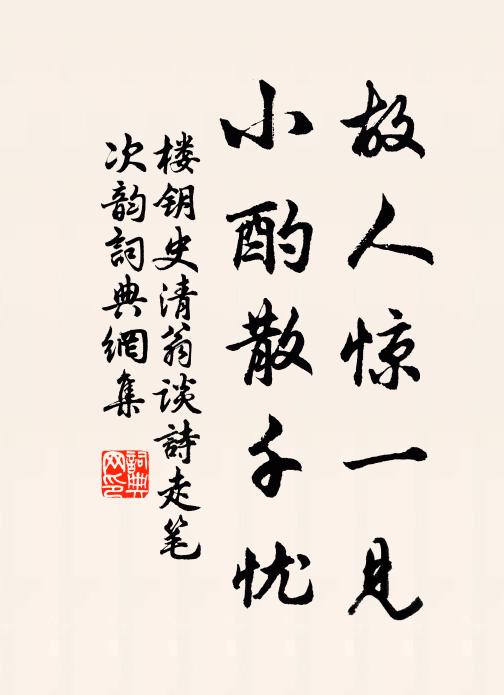 故人惊一见
小酌散千忧
楼钥史清翁谈詩走笔
次韵詞典網集
詞典
网印